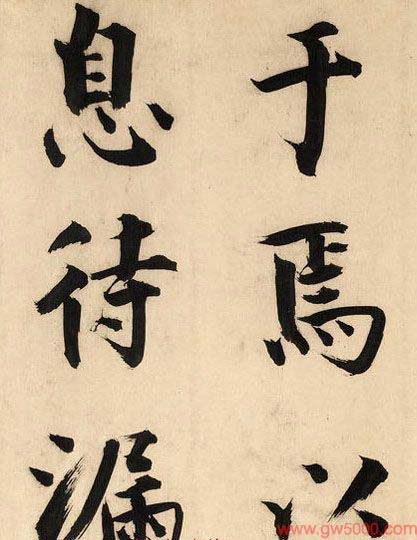 于焉以
息待漏
www.gw5000.com